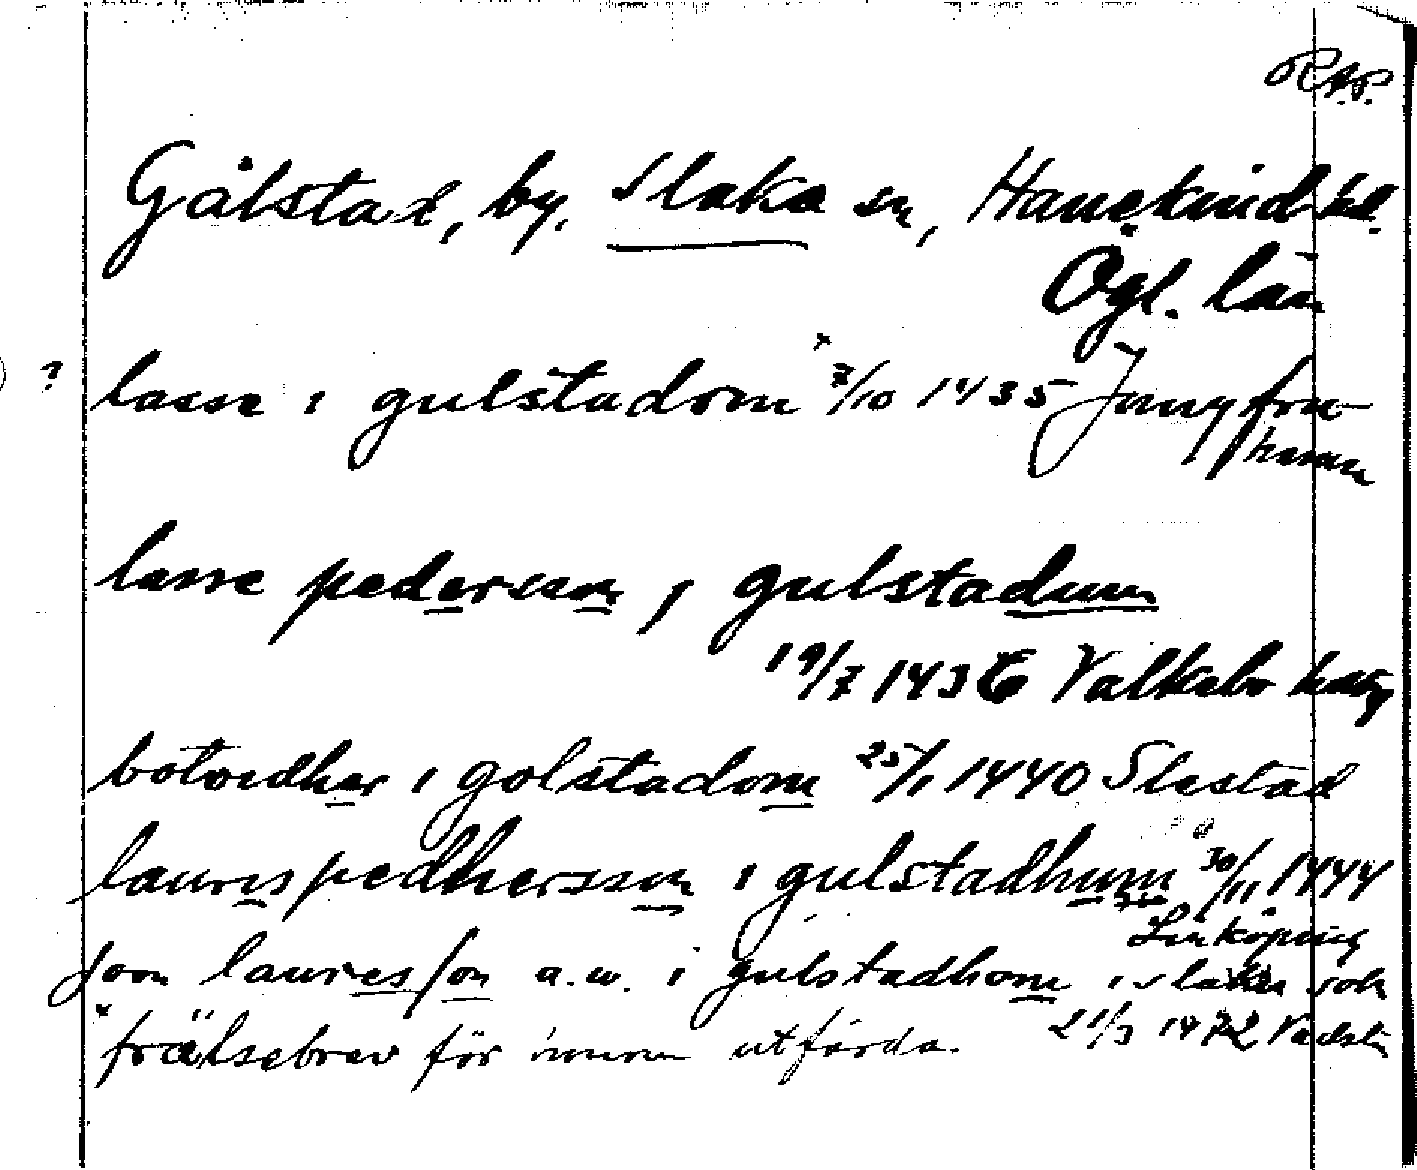 R.A.P.
Gålstad, by. Slaka sn, Hanekind hd.
Ögl. län
? lasse i gulstadom x 7/10 1435 Jungfru
hamn
lasse pedersson j gulstadum
19/7 1436 Valkebo
botvidher i golstadom 25/1 1440 Slestad
lauris pedhersson i gulstadhum 30/11 1444
Linköping
Jon lauresson a.w. i gulstadhom i slaka sok
x frälsebrev för innen utfärda. 21/3 1472 Vadst